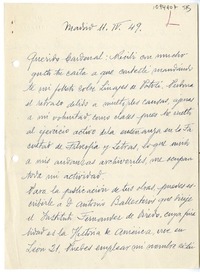 Madrid 11. IV. 49.
Querido Cardenal: Recibí con mucho
gusto tu carta a que contesté mandándo
te mi folleto sobre Linajes de Potosí. Perdona
el retraso debido a múltiples causas, ajenas
a mi voluntad como sabes pues he vuelto
al servicio activo de la enseñanza en la Fa
cultad de Filosofía y Letras, lo que unido a
mis andanzas archiveras, me ocupan
toda mi actividad.
Para la publicación de tus obras, puedes
escribirle a D. Antonio Ballesteros que dirige
el Instituto Fernández de Oviedo, cuya
es la Historia de América, vive en
León 21. Puedes emplear mi nombre